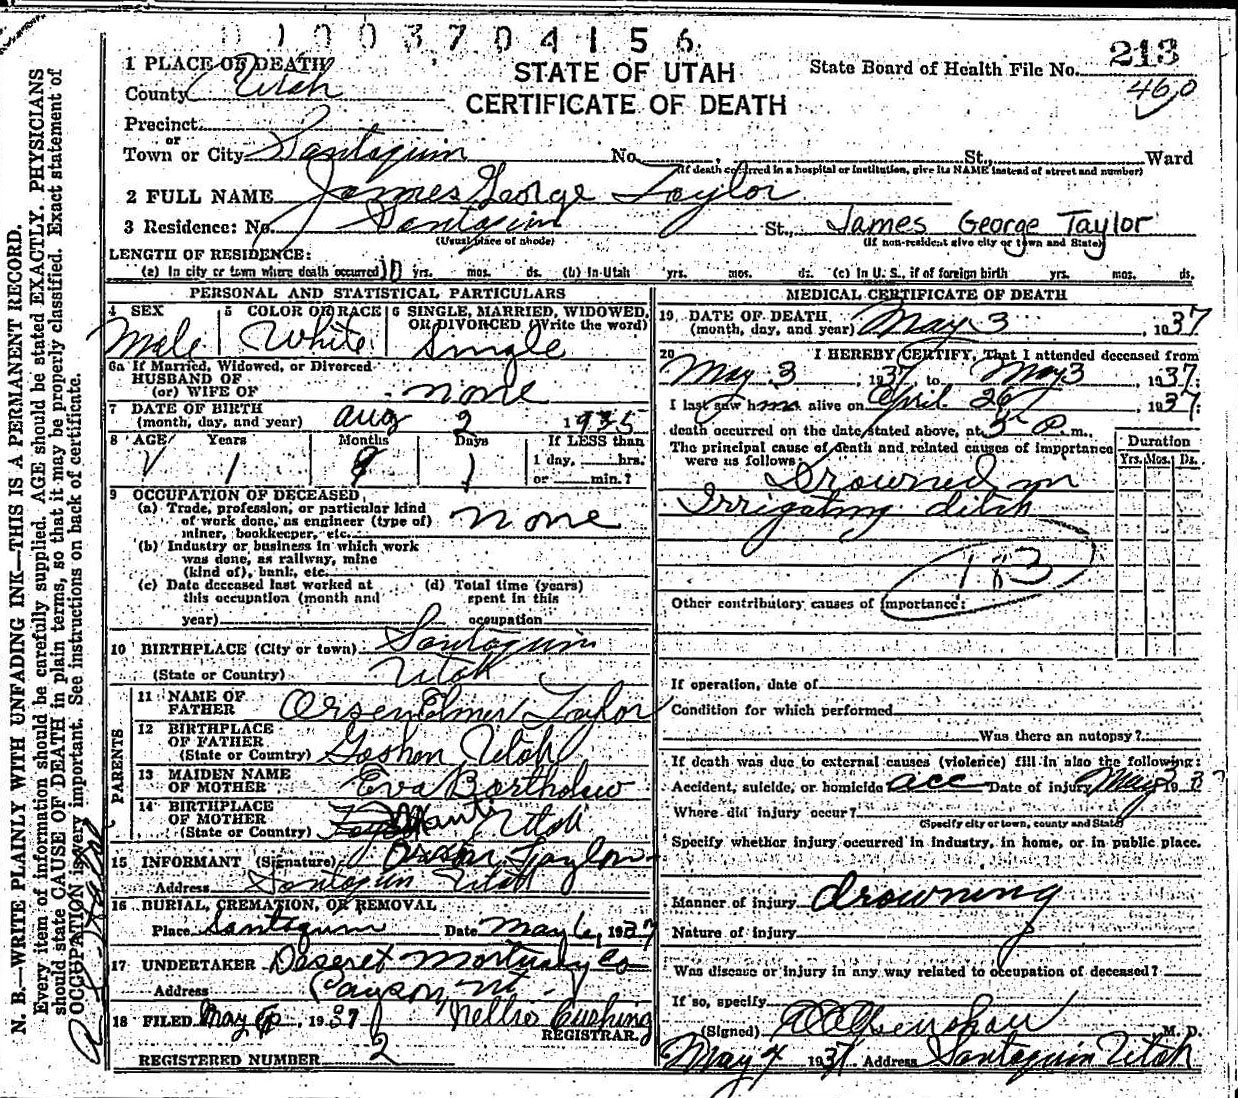 D 1 0 0 3 7 0 4 1 5 6
213
460
1 PLACE OF DEATH
STATE OF UTAH
State Board of Health File No.
County Utah
CERTIFICATE OF DEATH
Precinct
or
Town or City Santaquin No. , St., Ward
(If death occurred in a hospital or institution, give its NAME instead of street and number)
2 FULL NAME James George Taylor
3 Residence: No. Santaquin St., James George Taylor
(Usual place of abode) (If non-resident give city or town and State)
LENGTH OF RESIDENCE:
(a) In city or town where death occurred yrs. mos. ds. (b) In Utah yrs. mos. ds. (c) In U. S., if of foreign birth yrs. mos. ds.
PERSONAL AND STATISTICAL PARTICULARS
4 SEX 5 COLOR OR RACE 6 SINGLE, MARRIED, WIDOWED, OR DIVORCED (Write the word)
Male White Single
6a If Married, Widowed, or Divorced
HUSBAND OF
(or) WIFE OF none
7 DATE OF BIRTH
(month, day, and year) Aug 2 1935
8 AGE Years Months Days If LESS than
1 day, hrs.
1 1 or min.?
9 OCCUPATION OF DECEASED
(a) Trade, profession, or particular kind
of work done, as engineer (type of)
miner, bookkeeper, etc. none
(b) Industry or business in which work
was done, as railway, mine
(kind of), bank, etc.
(c) Date deceased last worked at (d) Total time (years)
this occupation (month and spent in this
year) occupation
10 BIRTHPLACE (City or town) Santaquin
(State or Country) Utah
PARENTS
11 NAME OF
FATHER Elmer Taylor
12 BIRTHPLACE
OF FATHER
(State or Country) Goshen Utah
13 MAIDEN NAME
OF MOTHER Eva Bartholew
14 BIRTHPLACE
OF MOTHER
(State or Country) Manti Utah
15 INFORMANT (Signature) Orson Taylor
Address Santaquin Utah
16 BURIAL, CREMATION, OR REMOVAL
Place Santaquin Date May 6, 1937
17 UNDERTAKER Deseret Mortuary Co
Address Payson, Ut.
18 FILED May 1937 Nellie Cushing
REGISTRAR.
REGISTERED NUMBER 2
MEDICAL CERTIFICATE OF DEATH
19 DATE OF DEATH
(month, day, and year) May 3, 1937
20 I HEREBY CERTIFY, That I attended deceased from
May 3, 1937 to May 3, 1937;
I last saw him alive on April 26, 1937;
death occurred on the date stated above, at 5 P.m.
The principal cause of death and related causes of importance
were as follows:
Duration
Yrs. Mos. Ds.
Drowned in
Irrigating ditch
183
Other contributory causes of importance:
If operation, date of
Condition for which performed
Was there an autopsy?
If death was due to external causes (violence) fill in also the following:
Accident, suicide, or homicide acc Date of injury May 3 19
Where did injury occur?
(Specify city or town, county and State)
Specify whether injury occurred in industry, in home, or in public place.
Manner of injury drowning
Nature of injury
Was disease or injury in any way related to occupation of deceased?
If so, specify
(Signed) M. D.
May 4 1937 Address Santaquin Utah
N. B.—WRITE PLAINLY WITH UNFADING INK—THIS IS A PERMANENT RECORD.
Every item of information should be carefully supplied. AGE should be stated EXACTLY. PHYSICIANS
should state CAUSE OF DEATH in plain terms, so that it may be properly classified. Exact statement of
OCCUPATION is very important. See instructions on back of certificate.